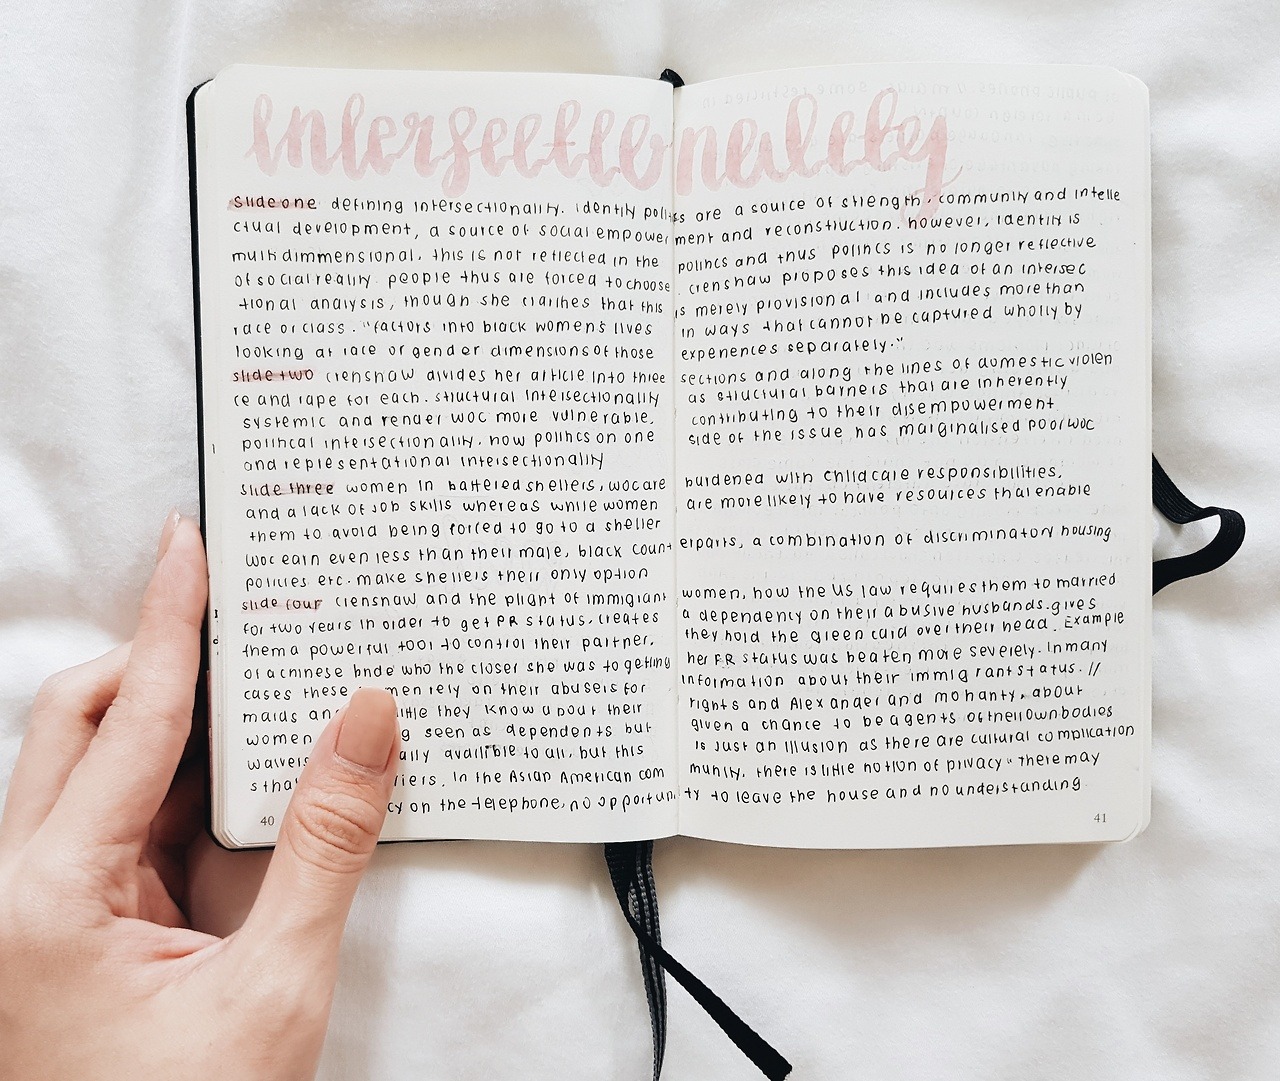 intersectionality
slide one defining intersectionality. identity politics are a source of strength, community and intelle
ctual development, a source of social empowerment and reconstruction. however, identity is
multidimmensional, this is not reflected in the politics and thus politics is no longer reflective
of social reality. people thus are forced to choose. crenshaw proposes this idea of an intersec
-tional analysis, though she clarifies that this is merely provisional and includes more than
race or class. "factors into black women's lives in ways that cannot be captured wholly by
looking at race or gender dimensions of those experiences separately."
slide two crenshaw divides her article into three sections and along the lines of domestic violen
ce and rape for each. structural intersectionality as structural barriers that are inherently
systemic and render woc more vulnerable, contributing to their disempowerment
political intersectionality, how politics on one side of the issue has marginalised poor woc
and representational intersectionality
slide three women in battered shelters, woc are burdened with childcare responsibilities,
and a lack of job skills whereas white women are more likely to have resources that enable
them to avoid being forced to go to a shelter
woc earn even less than their male, black counterparts, a combination of discriminatory housing
policies etc. make shelters their only option
slide four crenshaw and the plight of immigrant women, how the US law requires them to married
for two years in order to get PR status, creates a dependency on their abusive husbands. gives
them a powerful tool to control their partner, they hold the green card over their head. Example
of a chinese bride who the closer she was to getting her PR status was beaten more severely. In many
cases these women rely on their abusers for information about their immigrant status. //
maids and little they know about their rights and Alexander and mohanty, about
women seen as dependents but given a chance to be agents of their own bodies
waivers availible to all, but this is just an illusion as there are cultural complication
s tha riers. In the Asian American community, there is little notion of privacy "there may
cy on the telephone, no opportunity to leave the house and no understanding.
40
41